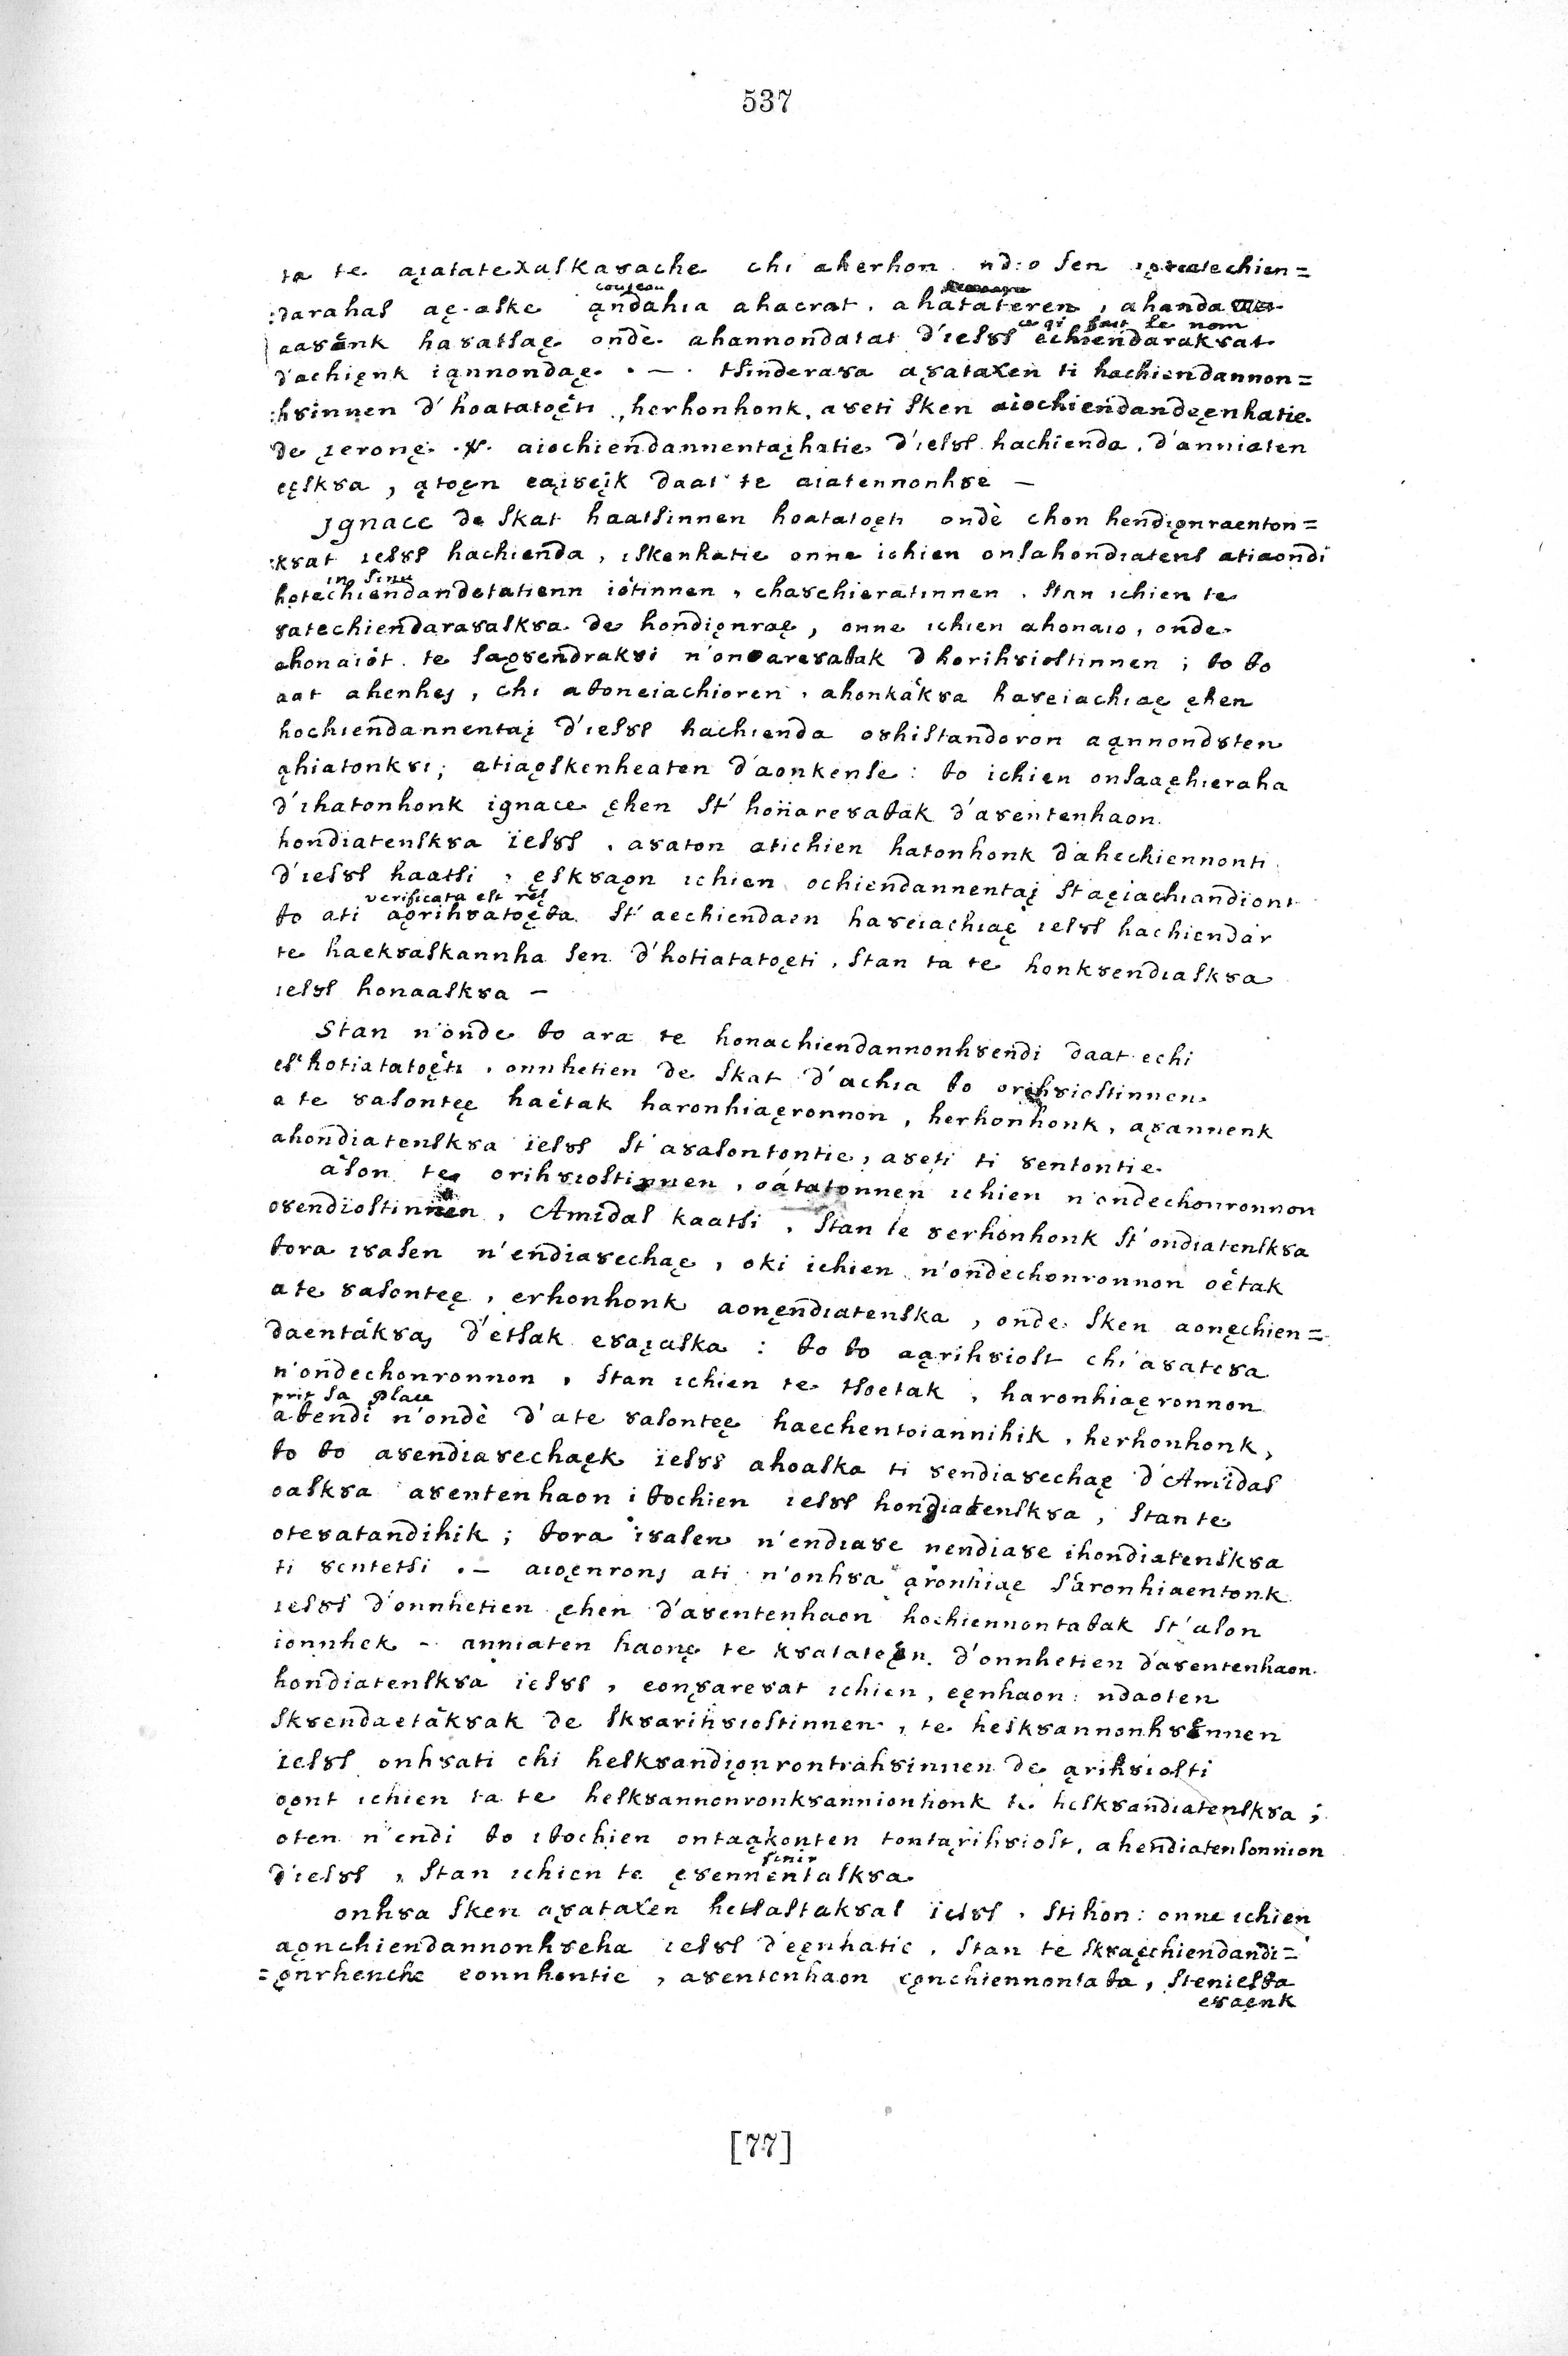 537
ta te ąıatateXalKaȣache chi aherhon nd:o sen
couteau
:darahas aę-aske ąndahıa ahaerat. ahatateren, ahanda
ce qi fait le nom
aaȣenk haȣatsaę ondè ahannondatat d'ıesȣs echiendarakȣat
d'achięnk iąnnondaę. — . tsinderaȣa aȣataxen ti hachiendannon=
:hȣinnen d'hoatatoęti, herhonhonk, aȣeti sken aiochiendandeęnhatie
de ȷeronę .ȣ. aiochiendannentaįhatie d'ıesȣs hachienda, d'anniaten
eęskȣa, ątoęn eąıȣeįk daat te aıatennonhȣe —
Jgnace de skat haatsinnen hoatatoęti ondè chon hendiǫnraenton=
:kȣat ıesȣs hachienda, ıskenhatie onne ichien onsahondıatens atiaondi
in sinu
hotechiendandetatienn iótinnen, chaȣchieratınnen. stan ıchien te
ȣatechiendaraȣaskȣa de hondiǫnraę, onne ıchien ahonaıo, onde
ahonaıót te saǫȣendrakȣi n'onȣareȣatak d horihȣiostinnen; to to
aat ahenheȷ, chi atoneiachioren, ahonkákȣa haȣeiachıaę ęhen
hochıendannentaį d'ıesȣs hachıenda oȣhistandoron aąnnondȣten
ąhiatonkȣı; atiaǫskenheaten d'aonkense: to ichien onsaaęhıeraha
d'ıhatonhonk ignace ęhen st' honareȣatak d'aȣentenhaon
hondiatenskȣa ıesȣs, aȣaton atichien hatonhonk d'ahechiennonti
d'ıesȣs haatsi, ęskȣaǫn ıchien ochiendannentaį staęiachıandiont
verificata est res
to ati aǫrihȣatoęta st'aechiendaen haȣeıachıaę ıesȣs hachiendar
te haekȣaskannha sen d'hotiatatoęti, stan ta te honkȣendıaskȣa
ıesȣs honaaskȣa —
Stan n'onde to ara te honachiendannonhȣendi daat echi
es' hotiatatoęti, onnhetien de skat d'achıa to orihȣiostinnen
a te ȣasonteę haétak haronhiaęronnon, herhonhonk, aȣannenk
ahondiatenskȣa ıesȣs st'aȣasontontie, aȣeti ti ȣentontie
áson te orihȣıostinnen, oátatonnen ıchien n'ondechonronnon
oȣendiostinnen, Amidas kaatsi, stan te ȣerhonhonk st'ondıatenskȣa
tora ıȣasen n'endiaȣechaę, oki ichien n'ondechonronnon oétak
a te ȣasonteę, erhonhonk aonęndıatenska, onde sken aonęchien=
daentákȣaȷ d'etsak eȣaıaska: to to aąrihȣiost chi'aȣateȣa
n'ondechonronnon, stan ıchien te tsoetak, haronhiaęronnon
prit sa place
atendi n'ondè d'ate ȣasonteę haechentoiannihik, herhonhonk,
to to aȣendiaȣechaęk ıesȣs ahoaska ti ȣendiaȣechaę d'Amidas
oaskȣa aȣentenhaon itochien ıesȣs hondiatenskȣa, stan te
oteȣatandihik; tora ıȣasen n'endıaȣe nendiaȣe ihondiatenskȣa
ti ȣentetsi .— aıoęnronȷ ati n'onhȣa ąronhiaę s'aronhiaentonk
ıesȣs d'onnhetien ęhen d'aȣentenhaon hochiennontatak st'ason
ionnhek — anniaten haonę te kȣatateęn d'onnhetien d'aȣentenhaon
hondiatenskȣa ıesȣs, eonȣareȣat ıchien, eęnhaon: ndaoten
skȣendaetákȣak de skȣarihȣıostinnen, te heskȣannonhȣennen
ıesȣs onhȣati chi heskȣandiǫnrontrahȣinnen de ąrihȣiosti
oǫnt ıchien ta te heskȣannonronkȣannionhonk te heskȣandıatenskȣa;
oten n'endi to ıtochien ontaąkonten tontaȣihȣiost, ahendiatensonnion
finir
d'ıesȣs, stan ıchien te ęȣennentaskȣa
onhȣa sken aȣataxen hetsastakȣas ıesȣs, stihon: onne ıchien
aǫnchiendannonhȣeha ıesȣs d'eęnhatie, stan te skȣaęchiendandı=
=ǫnrhenche eonnhontie, aȣentenhaon eǫnchiennontata, steniesta
eȣaęnk
[77]